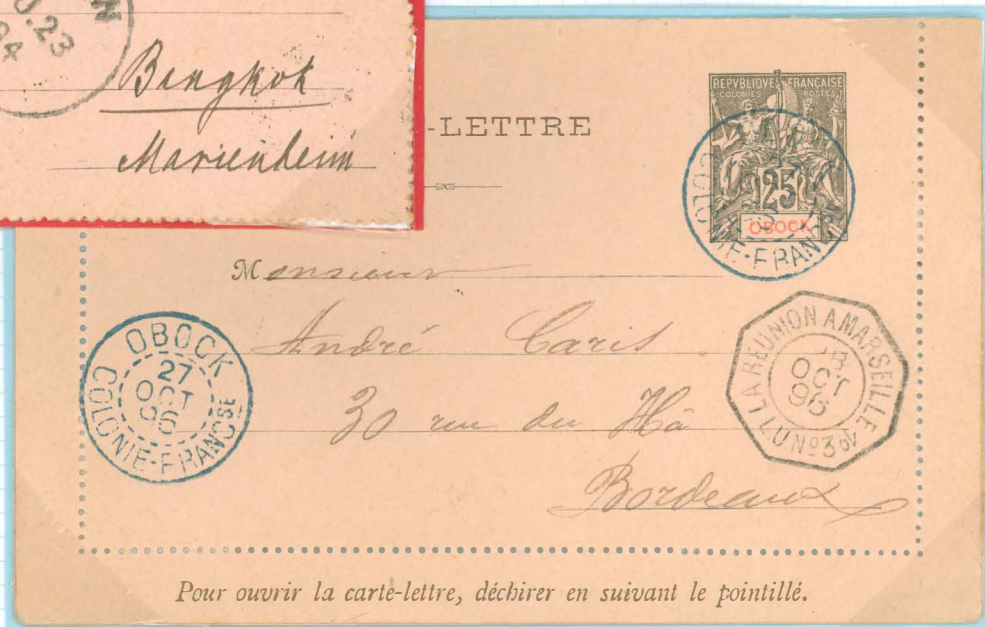 N
23
94
Bangkok
Marienheim
-LETTRE
REPVBLIQVE FRANÇAISE
COLONIES POSTES
25
OBOCK
COLONIE-FRANCSE
Monsieur
André Caris
30 rue du Hâ
Bordeaux
OBOCK
27
OCT
96
COLONIE-FRANCSE
LA REUNION A MARSEILLE
28
OCT
96
L.U.Nº3
Pour ouvrir la carte-lettre, déchirer en suivant le pointillé.